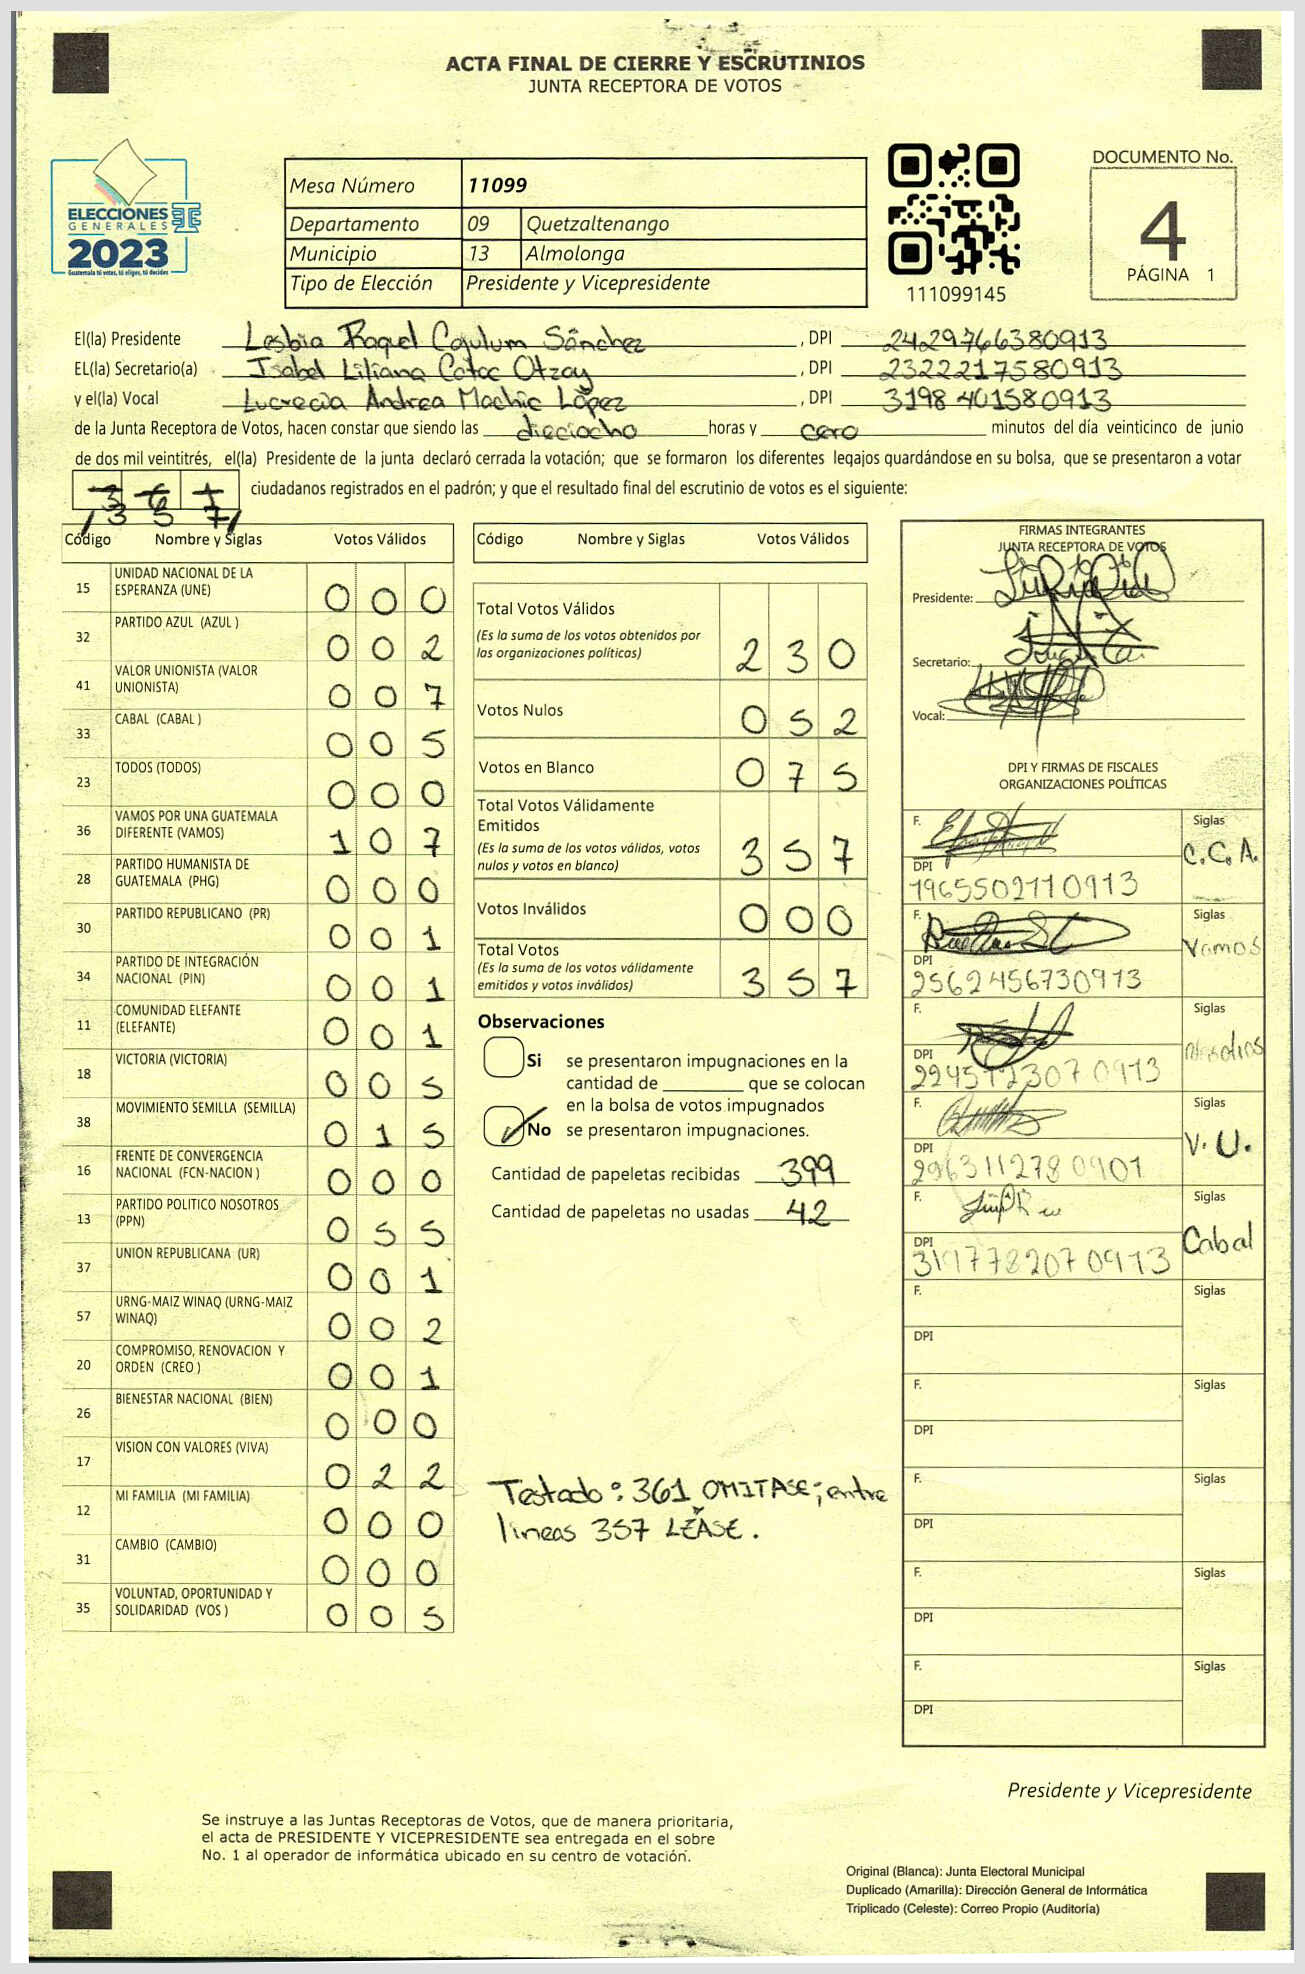 ACTA FINAL DE CIERRE Y ESCRUTINIOS
JUNTA RECEPTORA DE VOTOS
ELECCIONES
GENERALES
2023
Guatemala tú votas, tú eliges, tú decides
Mesa Número 11099
Departamento 09 Quetzaltenango
Municipio 13 Almolonga
Tipo de Elección Presidente y Vicepresidente
111099145
DOCUMENTO No.
4
PÁGINA 1
El(la) Presidente Lesbia Raquel Cojulum Sánchez, DPI 2429766380913
EL(la) Secretario(a) Isabel Liliana Cotoc Otzoy, DPI 2322217580913
y el(la) Vocal Lucrecia Andrea Machic López, DPI 3198401580913
de la Junta Receptora de Votos, hacen constar que siendo las dieciocho horas y cero minutos del día veinticinco de junio
de dos mil veintitrés, el(la) Presidente de la junta declaró cerrada la votación; que se formaron los diferentes legajos guardándose en su bolsa, que se presentaron a votar
361 ciudadanos registrados en el padrón; y que el resultado final del escrutinio de votos es el siguiente:
357
Código Nombre y Siglas Votos Válidos
15 UNIDAD NACIONAL DE LA
ESPERANZA (UNE) 000
32 PARTIDO AZUL (AZUL ) 002
41 VALOR UNIONISTA (VALOR
UNIONISTA) 007
33 CABAL (CABAL ) 005
23 TODOS (TODOS) 000
36 VAMOS POR UNA GUATEMALA
DIFERENTE (VAMOS) 107
28 PARTIDO HUMANISTA DE
GUATEMALA (PHG) 000
30 PARTIDO REPUBLICANO (PR) 001
34 PARTIDO DE INTEGRACIÓN
NACIONAL (PIN) 001
11 COMUNIDAD ELEFANTE
(ELEFANTE) 001
18 VICTORIA (VICTORIA) 005
38 MOVIMIENTO SEMILLA (SEMILLA) 015
16 FRENTE DE CONVERGENCIA
NACIONAL (FCN-NACION ) 000
13 PARTIDO POLITICO NOSOTROS
(PPN) 055
37 UNION REPUBLICANA (UR) 001
57 URNG-MAIZ WINAQ (URNG-MAIZ
WINAQ) 002
20 COMPROMISO, RENOVACION Y
ORDEN (CREO ) 001
26 BIENESTAR NACIONAL (BIEN) 000
17 VISION CON VALORES (VIVA) 022
12 MI FAMILIA (MI FAMILIA) 000
31 CAMBIO (CAMBIO) 000
35 VOLUNTAD, OPORTUNIDAD Y
SOLIDARIDAD (VOS ) 005
Código Nombre y Siglas Votos Válidos
Total Votos Válidos
(Es la suma de los votos obtenidos por
las organizaciones políticas) 230
Votos Nulos 052
Votos en Blanco 075
Total Votos Válidamente
Emitidos
(Es la suma de los votos válidos, votos
nulos y votos en blanco) 357
Votos Inválidos 000
Total Votos
(Es la suma de los votos válidamente
emitidos y votos inválidos) 357
Observaciones
Si se presentaron impugnaciones en la
cantidad de ________ que se colocan
en la bolsa de votos impugnados
No se presentaron impugnaciones.
Cantidad de papeletas recibidas 399
Cantidad de papeletas no usadas 42
Testado: 361 OMITASE; entre
lineas 357 LEASE.
FIRMAS INTEGRANTES
JUNTA RECEPTORA DE VOTOS
Presidente:
Secretario:
Vocal:
DPI Y FIRMAS DE FISCALES
ORGANIZACIONES POLÍTICAS
F. Siglas
C.C.A.
DPI
1965502110913
F. Siglas
Vamos
DPI
2562456730913
F. Siglas
Nosotros
DPI
2245123070913
F. Siglas
V.U.
DPI
2963112780901
F. Siglas
Cabal
DPI
3197782070913
F. Siglas
DPI
F. Siglas
DPI
F. Siglas
DPI
F. Siglas
DPI
F. Siglas
DPI
Presidente y Vicepresidente
Se instruye a las Juntas Receptoras de Votos, que de manera prioritaria,
el acta de PRESIDENTE Y VICEPRESIDENTE sea entregada en el sobre
No. 1 al operador de informática ubicado en su centro de votación.
Original (Blanca): Junta Electoral Municipal
Duplicado (Amarilla): Dirección General de Informática
Triplicado (Celeste): Correo Propio (Auditoría)